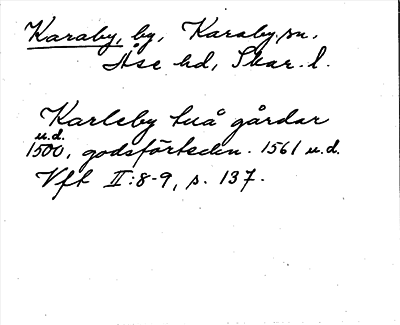 Karaby, by, Karaby sn,
Åse hd, Skar. l.
Karleby två gårdar
u.d.
1500, godsförteckn. 1561 u.d.
Vft II:8-9, s. 137.